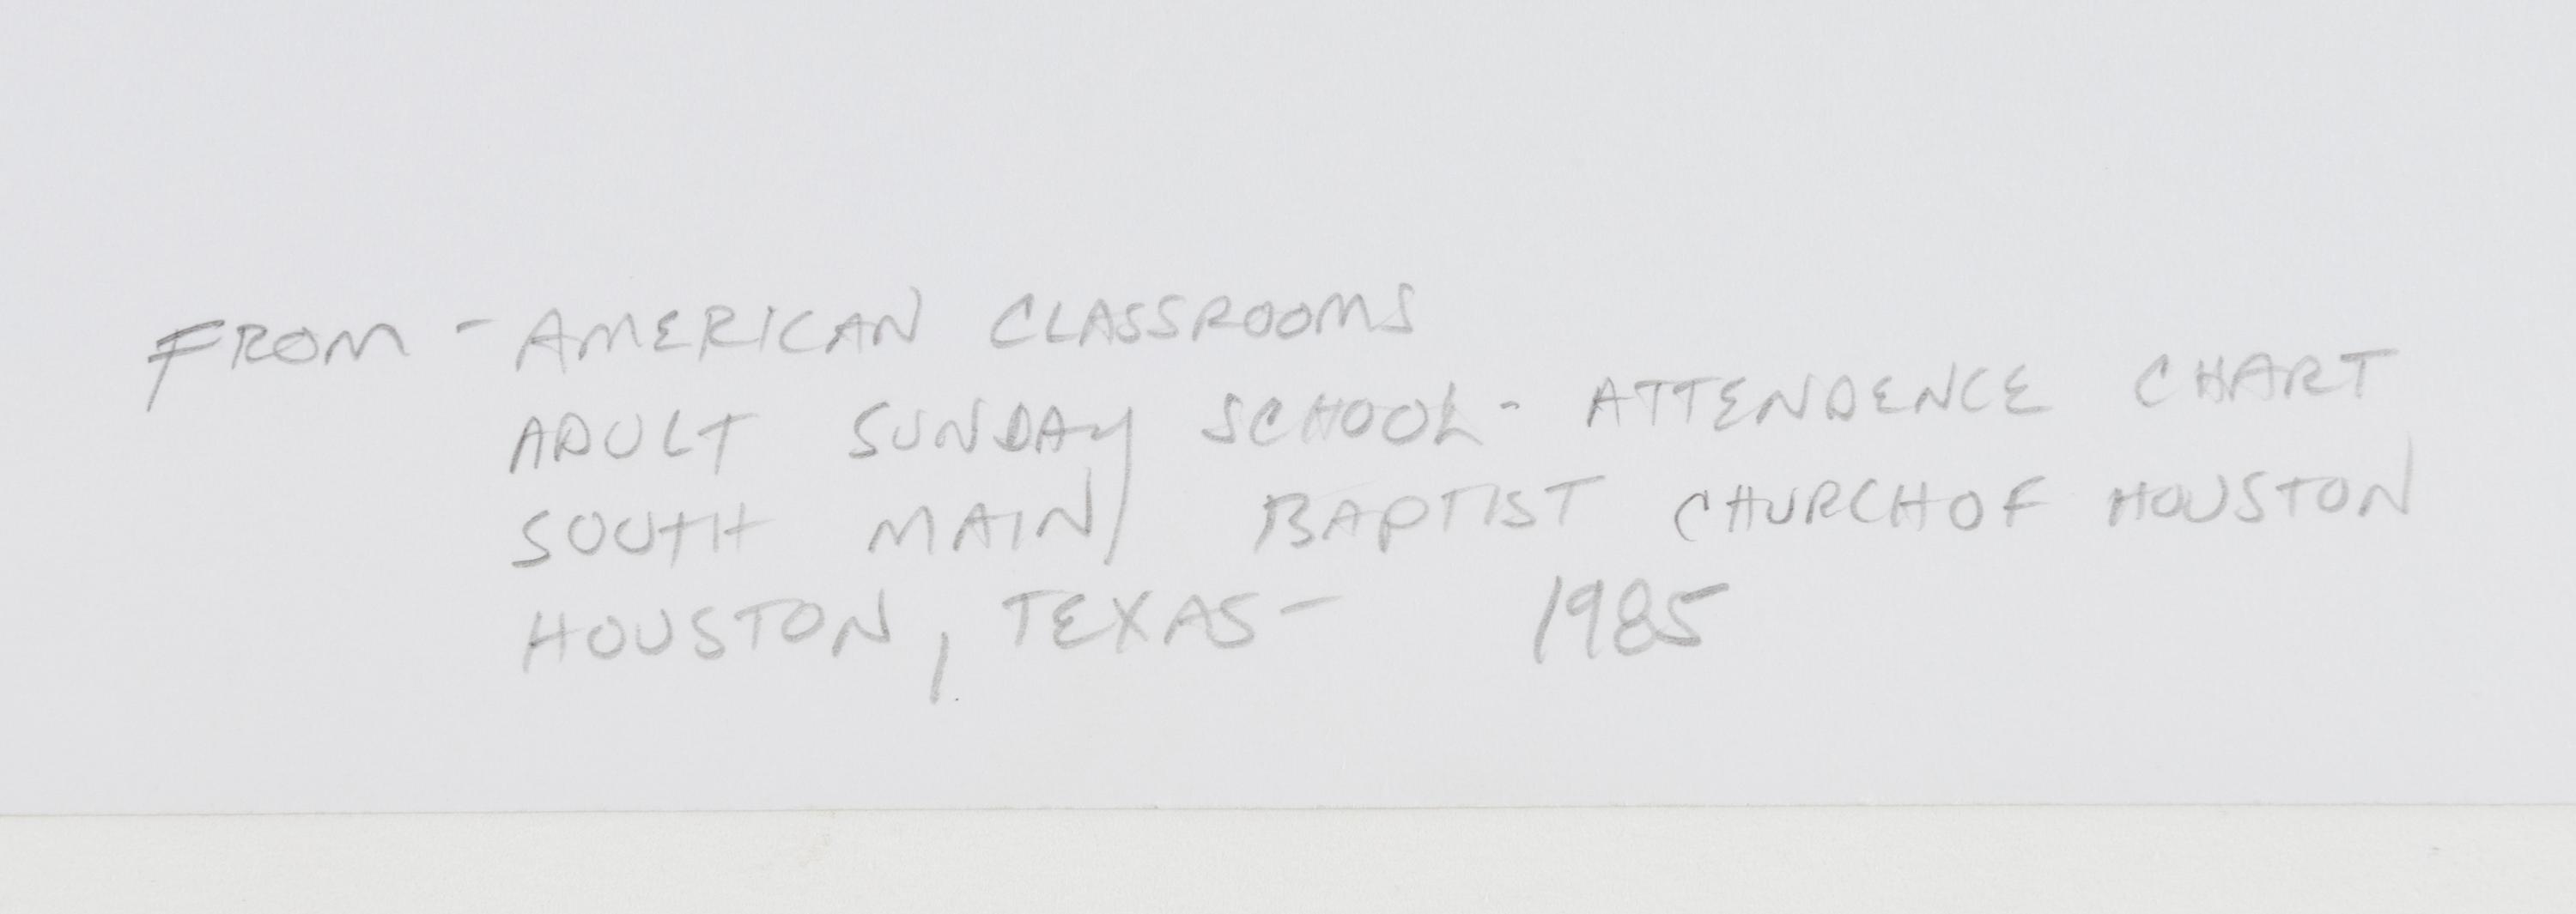 FROM - AMERICAN CLASSROOMS
ADULT SUNDAY SCHOOL - ATTENDENCE CHART
SOUTH MAIN BAPTIST CHURCH OF HOUSTON
HOUSTON, TEXAS - 1985